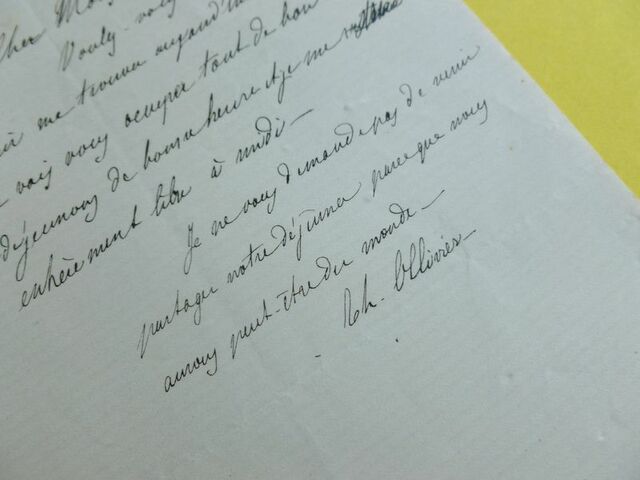 Cher Mo
Voulez-vous
me trouver aujourd'hui
vais vous occuper tout de bon
déjeunons de bonne heure et je me
entièrement libre à midi –
Je ne vous demande pas de venir
partager notre déjeuner parce que nous
aurons peut-être du monde –
Th. Ollivier –